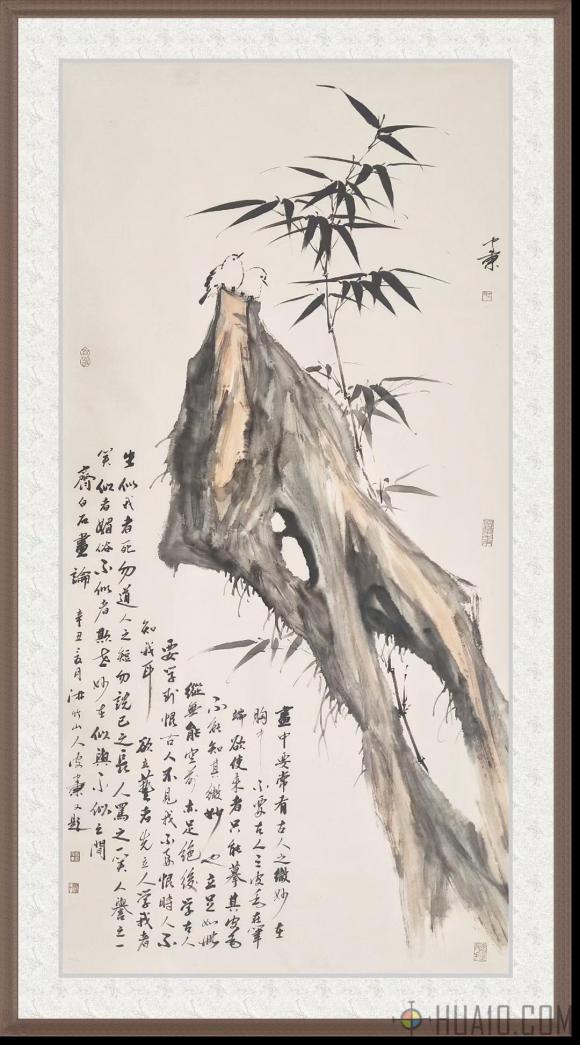 畫中要常有古人之微妙在
胸中不要古人之皮毛在筆
端欲使来者只能摹其皮毛
不能知其微妙也立足如此
縱無能空前亦足絶後学古人
要学到恨古人不見我不要恨時人不
知我耳 欲立藝者先立人学我者
生似我者死勿道人之短勿説己之長人罵之一笑人譽之一
笑似者媚俗不似者欺世妙在似與不似之間
齊白石畫論 辛丑 月 山人 又題
HUA10.COM